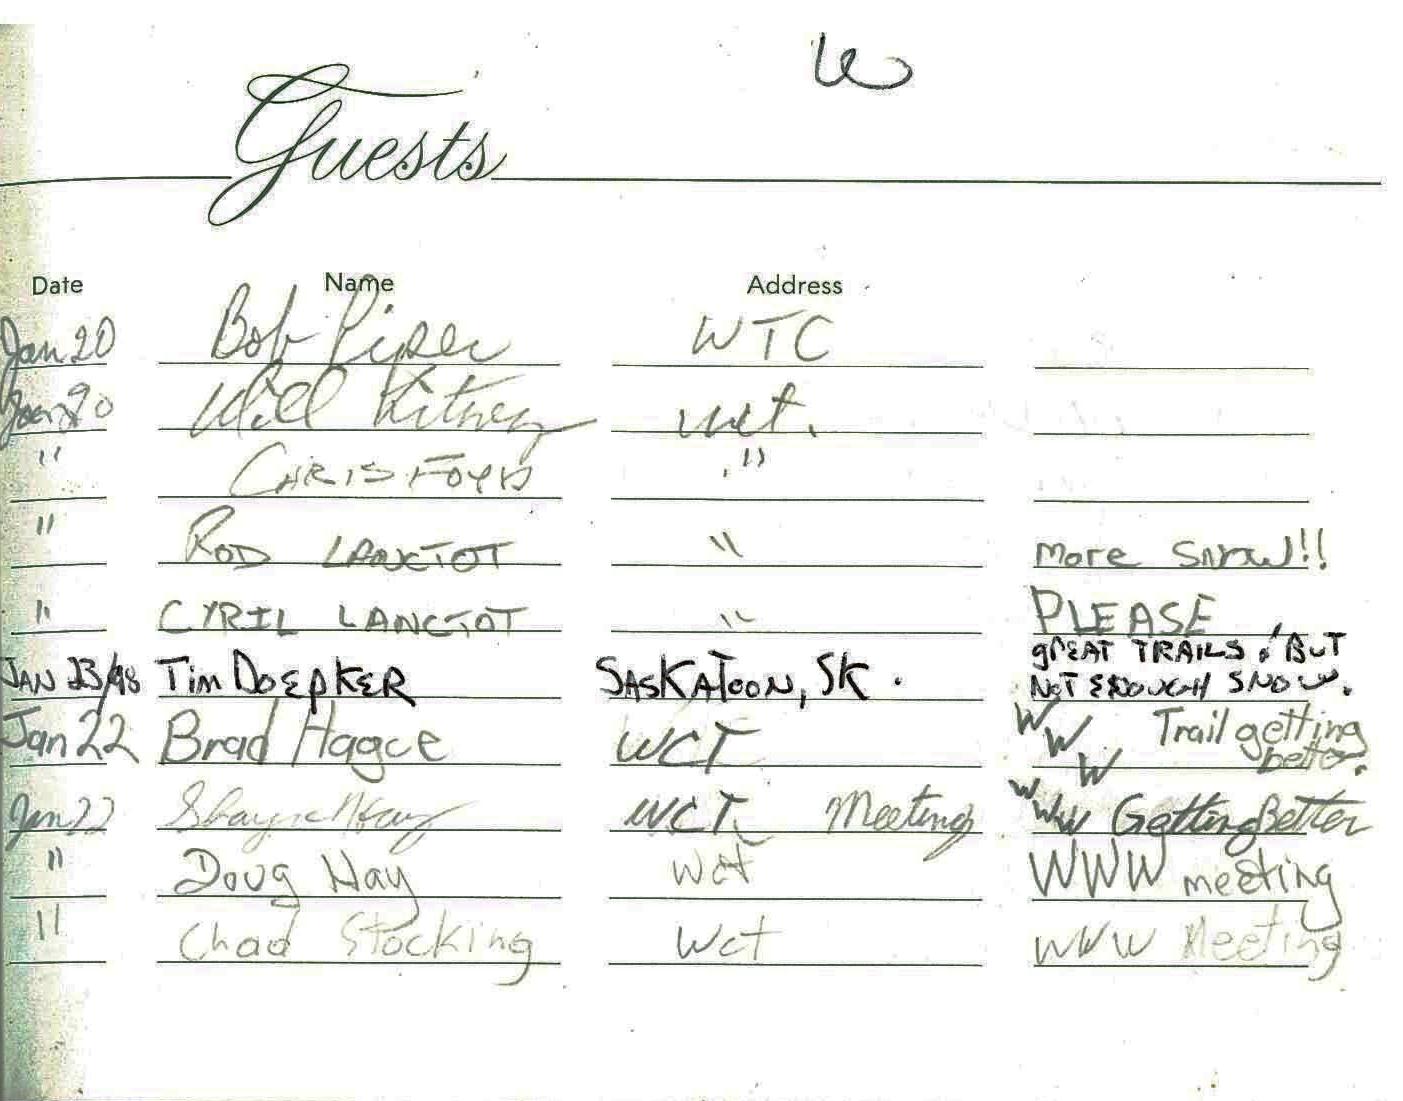 Guests
Date Name Address
Jan 20 Bob Piper WTC
Jan 20 Will Kitney wct.
" CHRIS FOYD "
" ROD LANCTOT " more snow!!
" CYRIL LANCTOT " PLEASE
GREAT TRAILS, BUT
JAN 23/98 Tim DOEPKER SASKATOON, SK. NOT ENOUGH SNOW.
Jan 22 Brad Hagce WCT WWW Trail getting
better.
Jan 22 Shayne Hay WCT Meeting WWW Getting Better
" Doug Hay Wct WWW meeting
" Chad Stocking Wct WWW Meeting